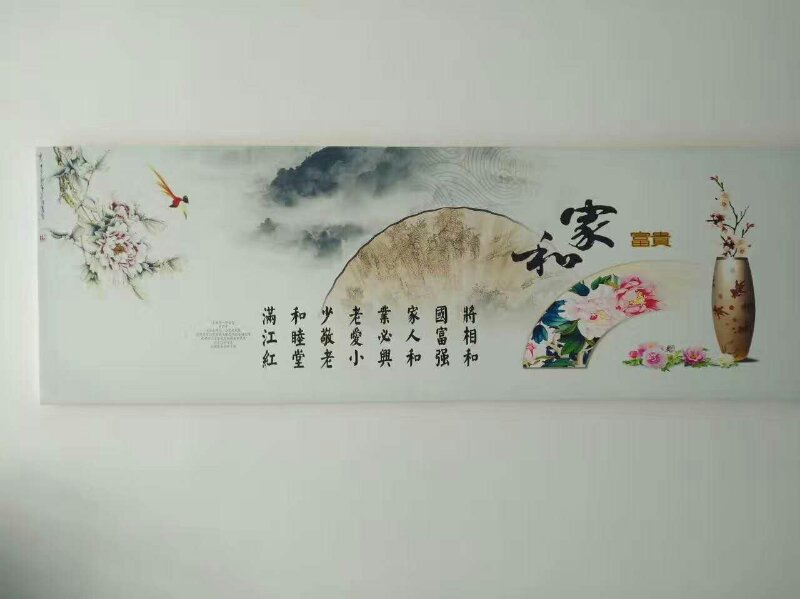 家和
富貴
將相和
國富强
家人和
業必興
老愛小
少敬老
和睦堂
滿江紅